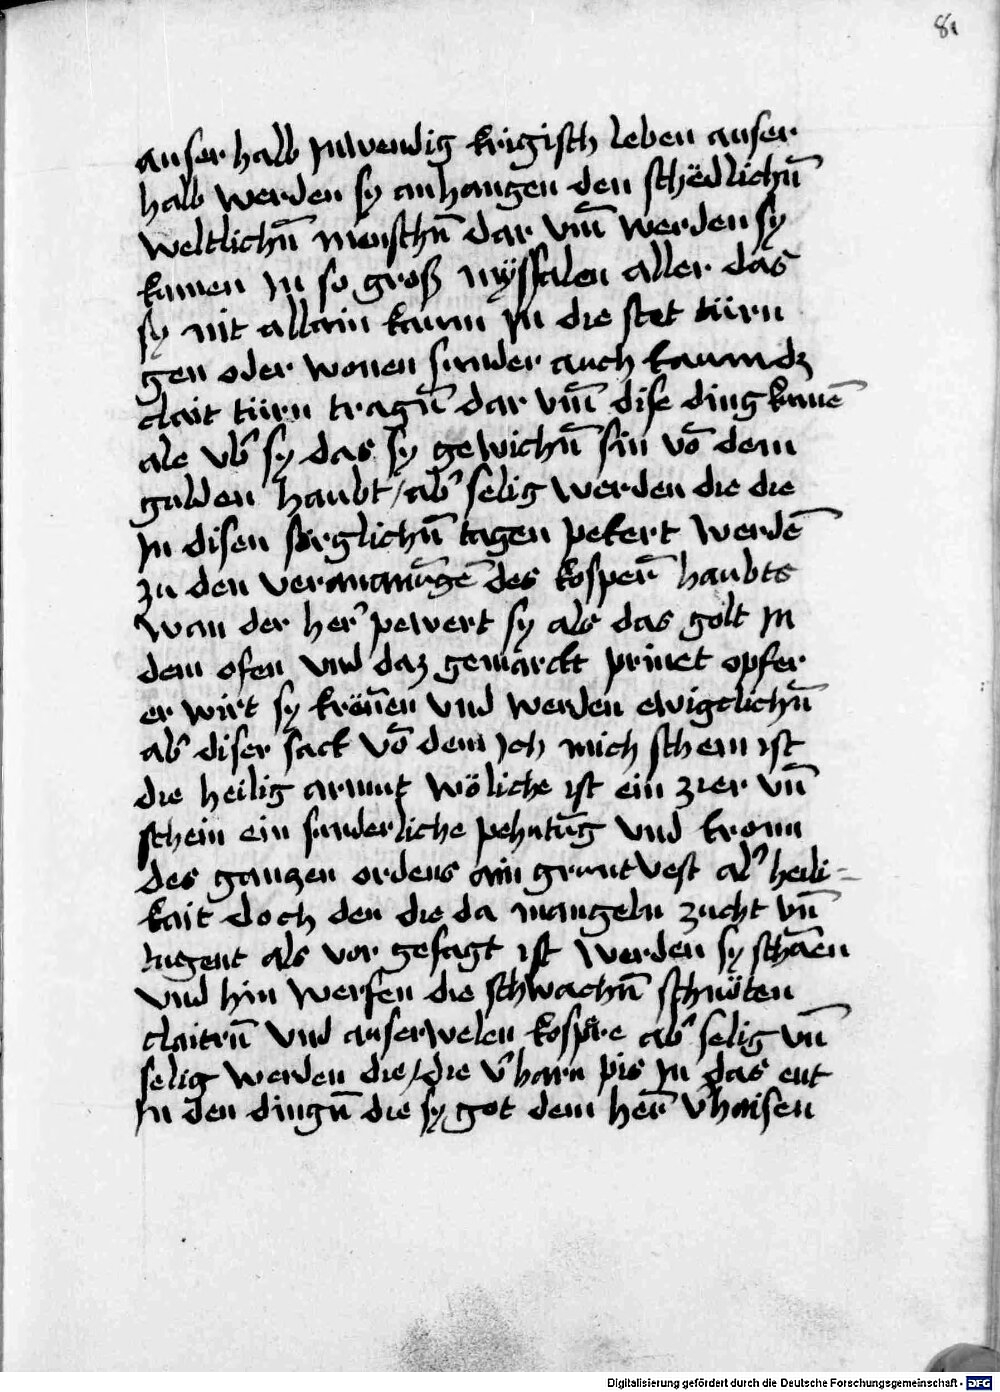 81
auſer halb Inwendig krigiſch leben auſer
halb werden ſy anhangen den ſchëdlichn̄
weltlichn̄ menſchn̄ dar vm̄ werden ſy
kumen In ſo groſß myſſfalen aller das
ſy nit allain kaum In die ſtet türn
gen oder wonen ſunder auch kaum dz
clait türn tragn̄ dar vm̄ diſe ding kumē
als vb̾ ſy das ſy gewichn̄ ſin vō dem
gulden haubt / ab̾ ſelig werden die die
In diſen ſörglichn̄ tagen pekert werdē
zu den vermanūgē des koſpern̄ haubts
wan der her̾ pewert ſy als das golt In
dem ofen vnd daz gemarckt prinet opfer
er wirt ſy krönen vnd werden ewigclichn̄
ab̾ diſer ſack vō dem Ich mich ſchem iſt
die heilig armut wöliche iſt ein zier vn̄
ſchein ein ſunderliche pehutūg vnd kronn
des ganzen ordens ain gruntveſt al̾ heili-
kait doch den die da mangeln zucht vn̄
tugent als vor geſagt iſt werden ſy ſchāen
vnd hin werfen die ſchwachn̄ ſchnöten
claitrn̄ vnd auſerwelen koſpre ab̾ ſelig vn̄
ſelig werden die / die v̾harn pis In das ent
In den dingn̄ die ſy got dem her̄ v̾haiſen
Digitalisierung gefördert durch die Deutsche Forschungsgemeinschaft - DFG